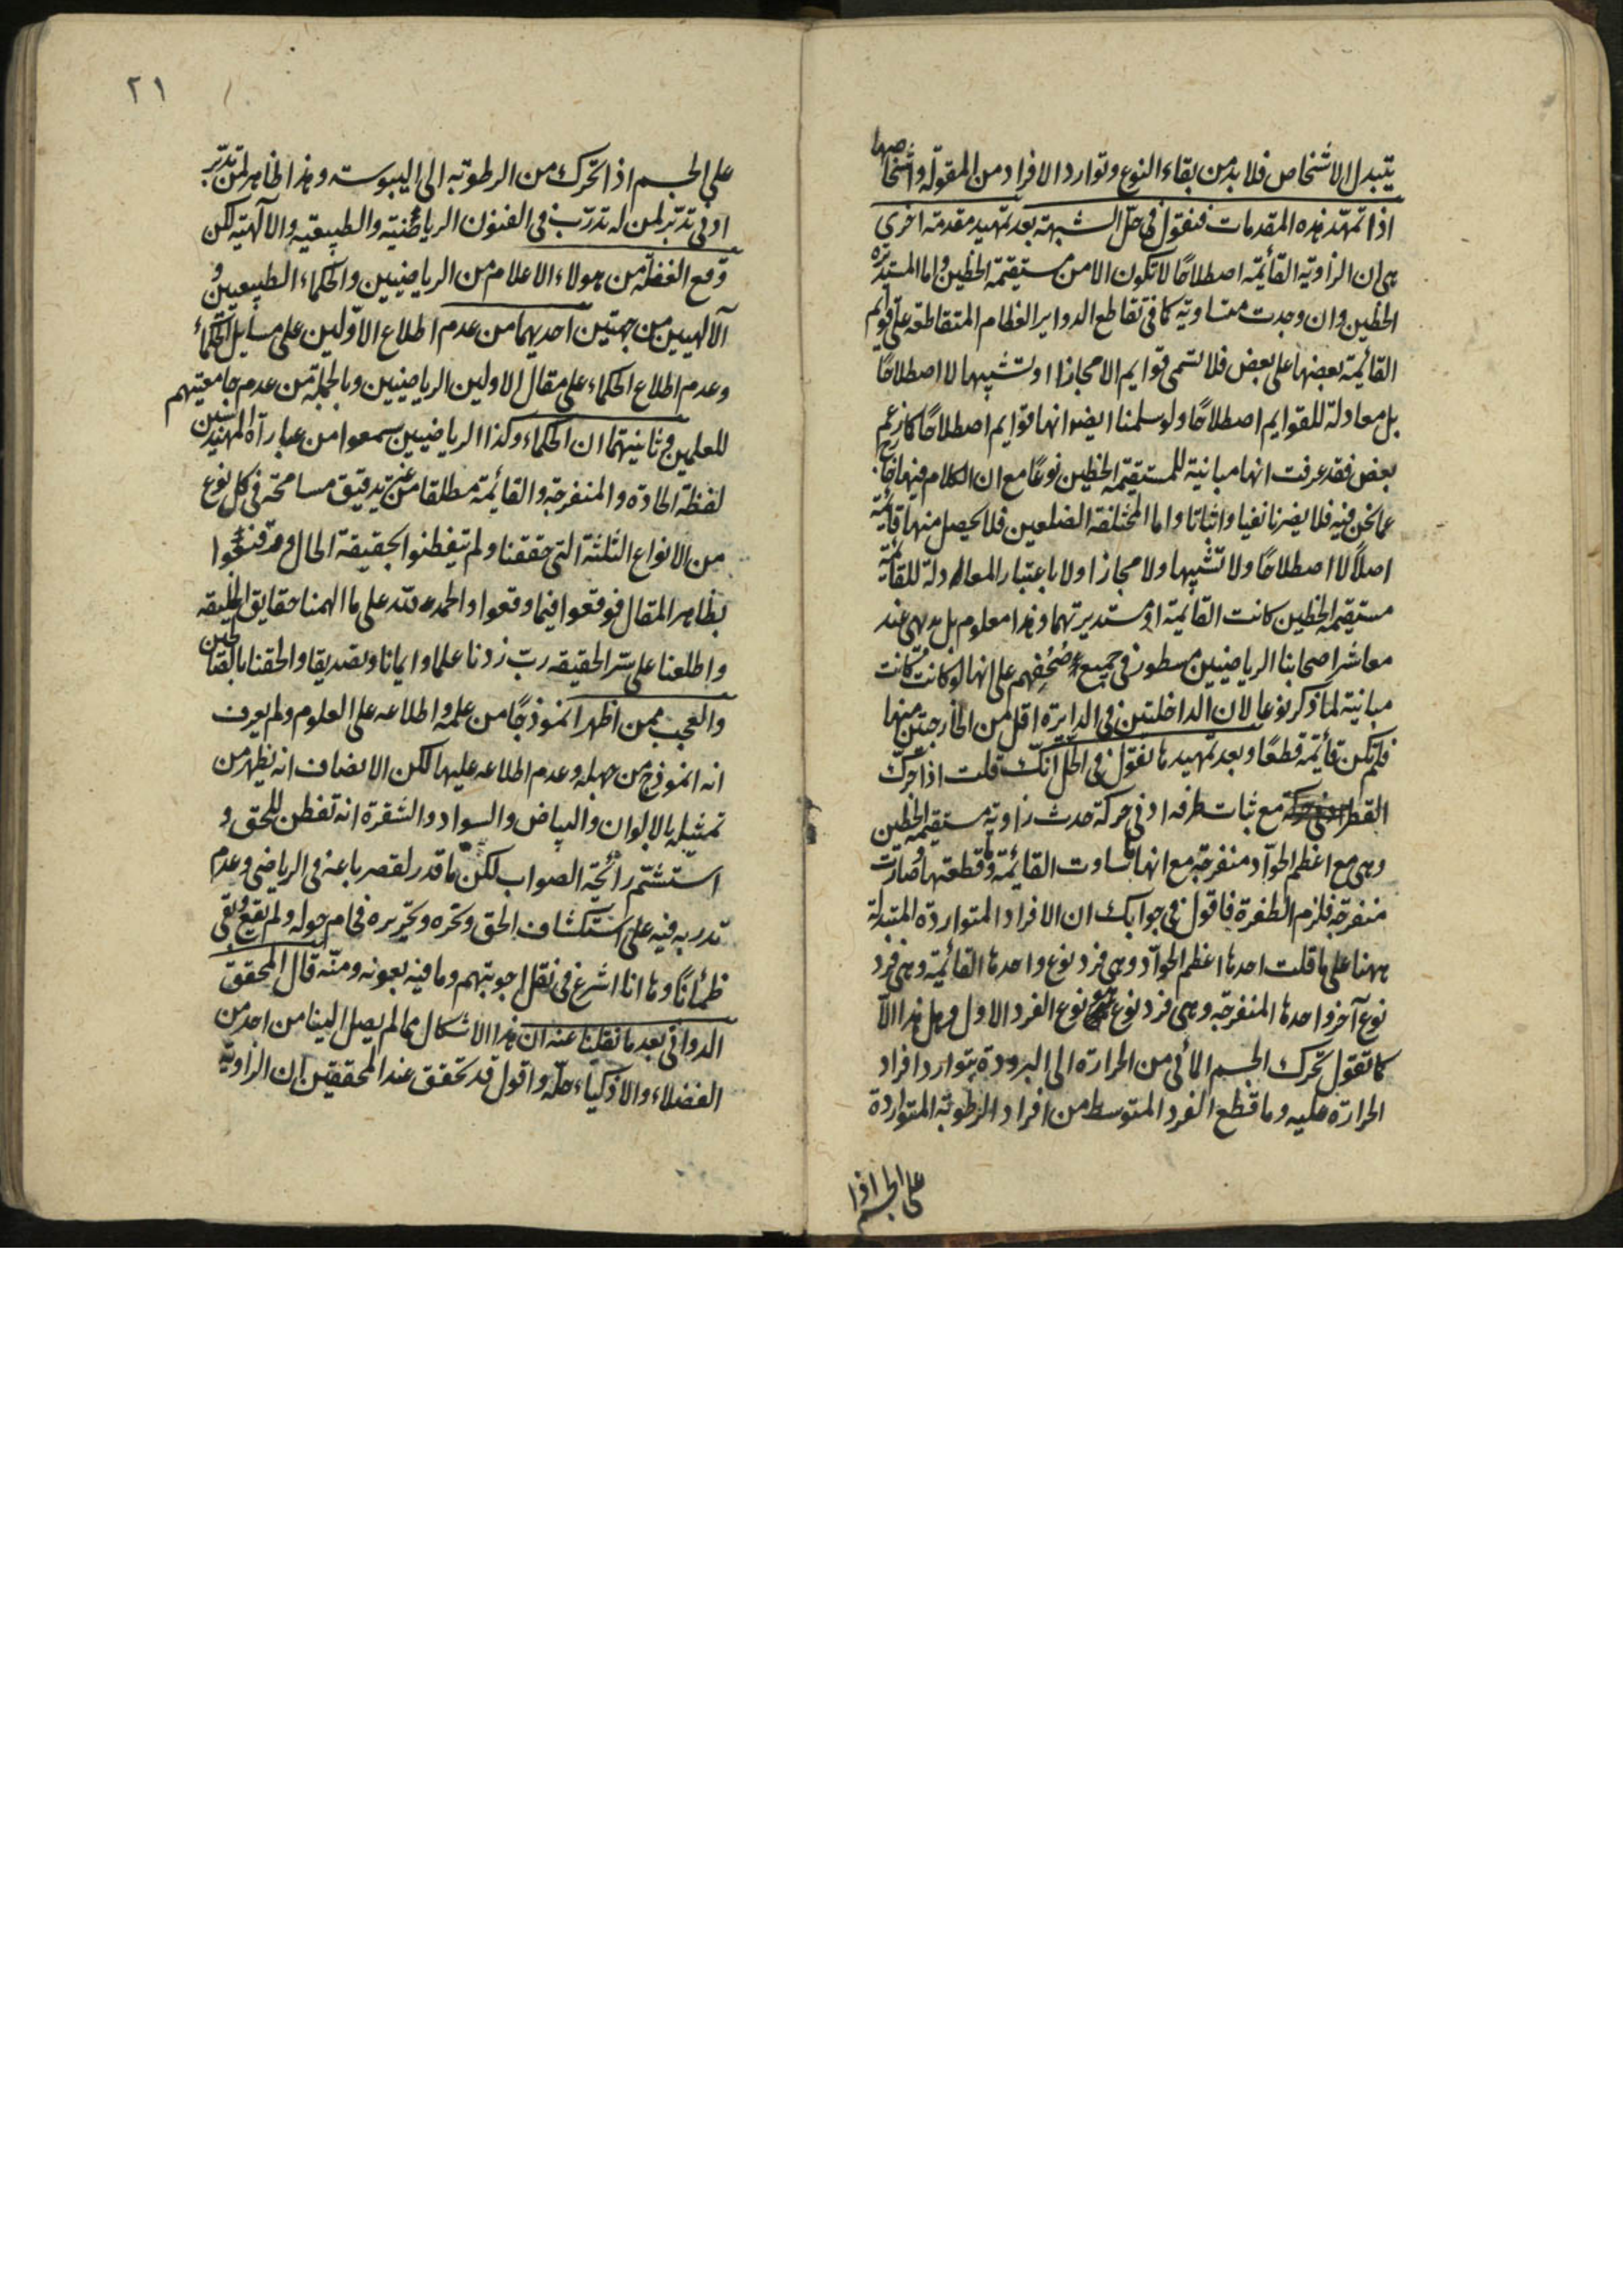 يتبدل الاشخاص فلا بد من بقاء النوع وتوارد الافراد من المقولة واشخاصها
اذا تمهّد هذه المقدمات فنقول فى حلّ الشبهة بعد تمهيد مقدمة اخرى
هى ان الزاوية القائمة اصطلاحًا لا تكون الا من مستقيمة الخطين واما المستديرة
الخطين وان وجدت متساوية كما فى تقاطع الدواير العظام المتقاطعة على قوايم
القائمة بعضها على بعض فلا تسمى قوايم الا مجازا او تشبيها لا اصطلاحًا
بل معادلة للقوايم اصطلاحًا ولو سلمنا ايضا انها قوايم اصطلاحًا كما زعم
بعض فقد عرفت انها مباينة للمستقيمة الخطين نوعًا مع ان الكلام فيها خارج
عما نحن فيه فلا يضرنا نفيا واثباتا واما المختلفة الضلعين فلا يحصل منها قائمة
اصلًا لا اصطلاحًا ولا تشبيها ولا مجازا ولا باعتبار المعادلة للقائمة
مستقيمة الخطين كانت القايمة او مستديرتهما وهذا معلوم بل بديهى عند
معاشر اصحابنا الرياضيين مسطور فى جميع صحفهم على انها لو كانت لكانت
مباينة لما ذكر نوعا لان الداخلتين فى الدايرة اقل من الخارجتين منها
فلم تكن قائمة قطعًا وبعد تمهيدها نقول فى الحل انك قلت اذا تحرك
القطر مع ثبات طرفه ادنى حركة حدث زاوية مستقيمة الخطين
وهى مع اعظم الحوآد منفرجة مع انها ما ساوت القائمة وما قطعتها وصارت
منفرجة فلزم الطفرة فاقول فى جوابك ان الافراد المتواردة المتبدلة
ههنا على ما قلت احدها اعظم الحوآد وهى فرد نوع واحدها القائمة وهى فرد
نوع آخر واحدها المنفرجة وهى فرد نوع هو نوع الفرد الاول وهل هذا الا
كما تقول تحرك الجسم المائى من الحرارة الى البرودة بتوارد افراد
الحرارة عليه وما قطع الفرد المتوسط من افراد الرطوبة المتواردة
على الجسم اذا
٢١
على الجسم اذا تحرك من الرطوبة الى اليبوسة وهذا ظاهر لمن تدبّر
ادنى تدبّر لمن له تدرّب فى الفنون الرياضية والطبيعية والالهية لكن
وقع الغفلة من هولاء الاعلام من الرياضيين والحكماء الطبيعيين و
الآلهيين من جهتين احديهما من عدم اطلاع الاوّلين على مسايل الحكماء
وعدم اطلاع الحكماء على مقال الاولين الرياضيين وبالجملة من عدم جامعيتهم
للعلمين وثانيتهما ان الحكماء وكذا الرياضيين سمعوا من عبارآة المهندسين
لفظة الحادة والمنفرجة والقائمة مطلقا من غير تدقيق مسامحة فى كل نوع
من الانواع الثلثة التى حققنا ولم يتفطنوا بحقيقة الحال وقد قنعوا
بظاهر المقال فوقعوا فيما وقعوا والحمد لله على ما الهمنا حقايق الخليقه
واطلعنا على سرّ الحقيقه ربّ زدنا علما وايمانا وتصديقا والحقنا بالصالحين
والعجب ممن اظهر انموذجًا من علمه واطلاعه على العلوم ولم يعرف
انه انموذج من جهله وعدم اطلاعه عليها لكن الانصاف انه يظهر من
تمثيله بالالوان والبياض والسواد والشقرة انه تفطن للحق و
استشتم رائحة الصواب لكن ما قدر لقصر باعه فى الرياضى وعدم
تدربه فيه على استكشاف الحق وتحريره فحام حوله ولم يقع وبقى
ظمئانًا وها انا اشرع فى نقل اجوبتهم وما فيه بعونه ومنّه قال المحقق
الدوانى بعد ما نقلنا عنه ان هذا الاشكال مما لم يصل الينا من احد من
الفضلاء والاذكياء حلّه واقول قد تحقق عند المحققين ان الزاوية